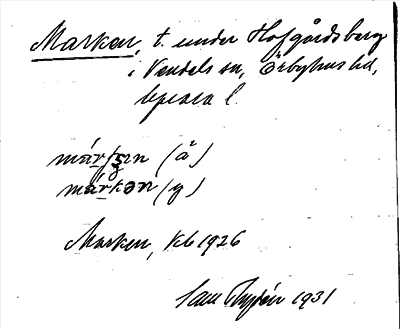 Marken, t. under Hofgårdsberg
i Vendels sn, Örbyhus hd,
Uppsala l.
(å)
markən (y)
Marken, kb 1926
1931